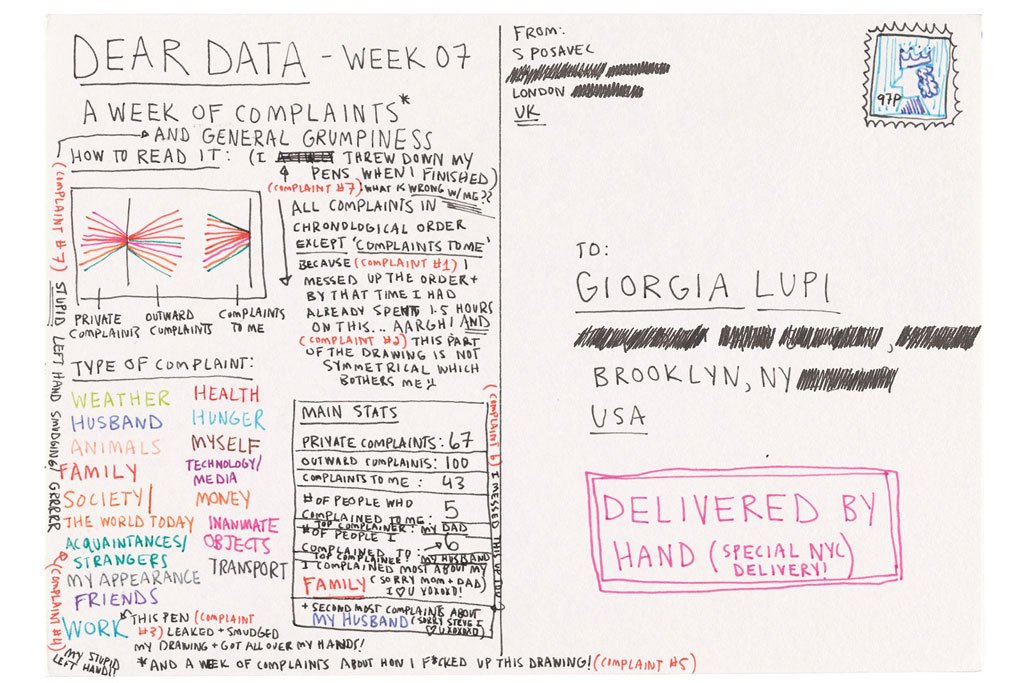 DEAR DATA - WEEK 07
A WEEK OF COMPLAINTS*
AND GENERAL GRUMPINESS
HOW TO READ IT: (I THREW DOWN MY
PENS WHEN I FINISHED)
(COMPLAINT #7) WHAT IS WRONG W/ME??
ALL COMPLAINTS IN
CHRONOLOGICAL ORDER
EXCEPT 'COMPLAINTS TO ME'
BECAUSE (COMPLAINT #1) I
MESSED UP THE ORDER +
BY THAT TIME I HAD
ALREADY SPENT 1.5 HOURS
ON THIS... AARGH! AND
(COMPLAINT #2) THIS PART
OF THE DRAWING IS NOT
SYMMETRICAL WHICH
BOTHERS ME!!
PRIVATE
COMPLAINTS
OUTWARD
COMPLAINTS
COMPLAINTS
TO ME
(COMPLAINT #7) STUPID LEFT HAND SMUDGING! GRRRRR
TYPE OF COMPLAINT:
WEATHER
HUSBAND
ANIMALS
FAMILY
SOCIETY/
THE WORLD TODAY
ACQUAINTANCES/
STRANGERS
MY APPEARANCE
FRIENDS
WORK
HEALTH
HUNGER
MYSELF
TECHNOLOGY/
MEDIA
MONEY
INANIMATE
OBJECTS
TRANSPORT
THIS PEN (COMPLAINT
#3) LEAKED + SMUDGED
MY DRAWING + GOT ALL OVER MY HANDS!
(COMPLAINT #4)
MY STUPID
LEFT HAND!!
MAIN STATS
PRIVATE COMPLAINTS: 67
OUTWARD COMPLAINTS: 100
COMPLAINTS TO ME: 43
# OF PEOPLE WHO
COMPLAINED TO ME: 5
TOP COMPLAINER: MY DAD
# OF PEOPLE I
COMPLAINED TO: 6
TOP COMPLAINEE: MY HUSBAND
I COMPLAINED MOST ABOUT MY
FAMILY (SORRY MOM + DAD)
I ♡ U XOXOXO!
+ SECOND MOST COMPLAINTS ABOUT
MY HUSBAND (SORRY STEVE I
♡ U XOXOXO)
(COMPLAINT 6) I MESSED THIS UP TOO
*AND A WEEK OF COMPLAINTS ABOUT HOW I F*CKED UP THIS DRAWING! (COMPLAINT #5)
FROM:
S POSAVEC
LONDON
UK
97P
TO:
GIORGIA LUPI
BROOKLYN, NY
USA
DELIVERED BY
HAND (SPECIAL NYC
DELIVERY!)